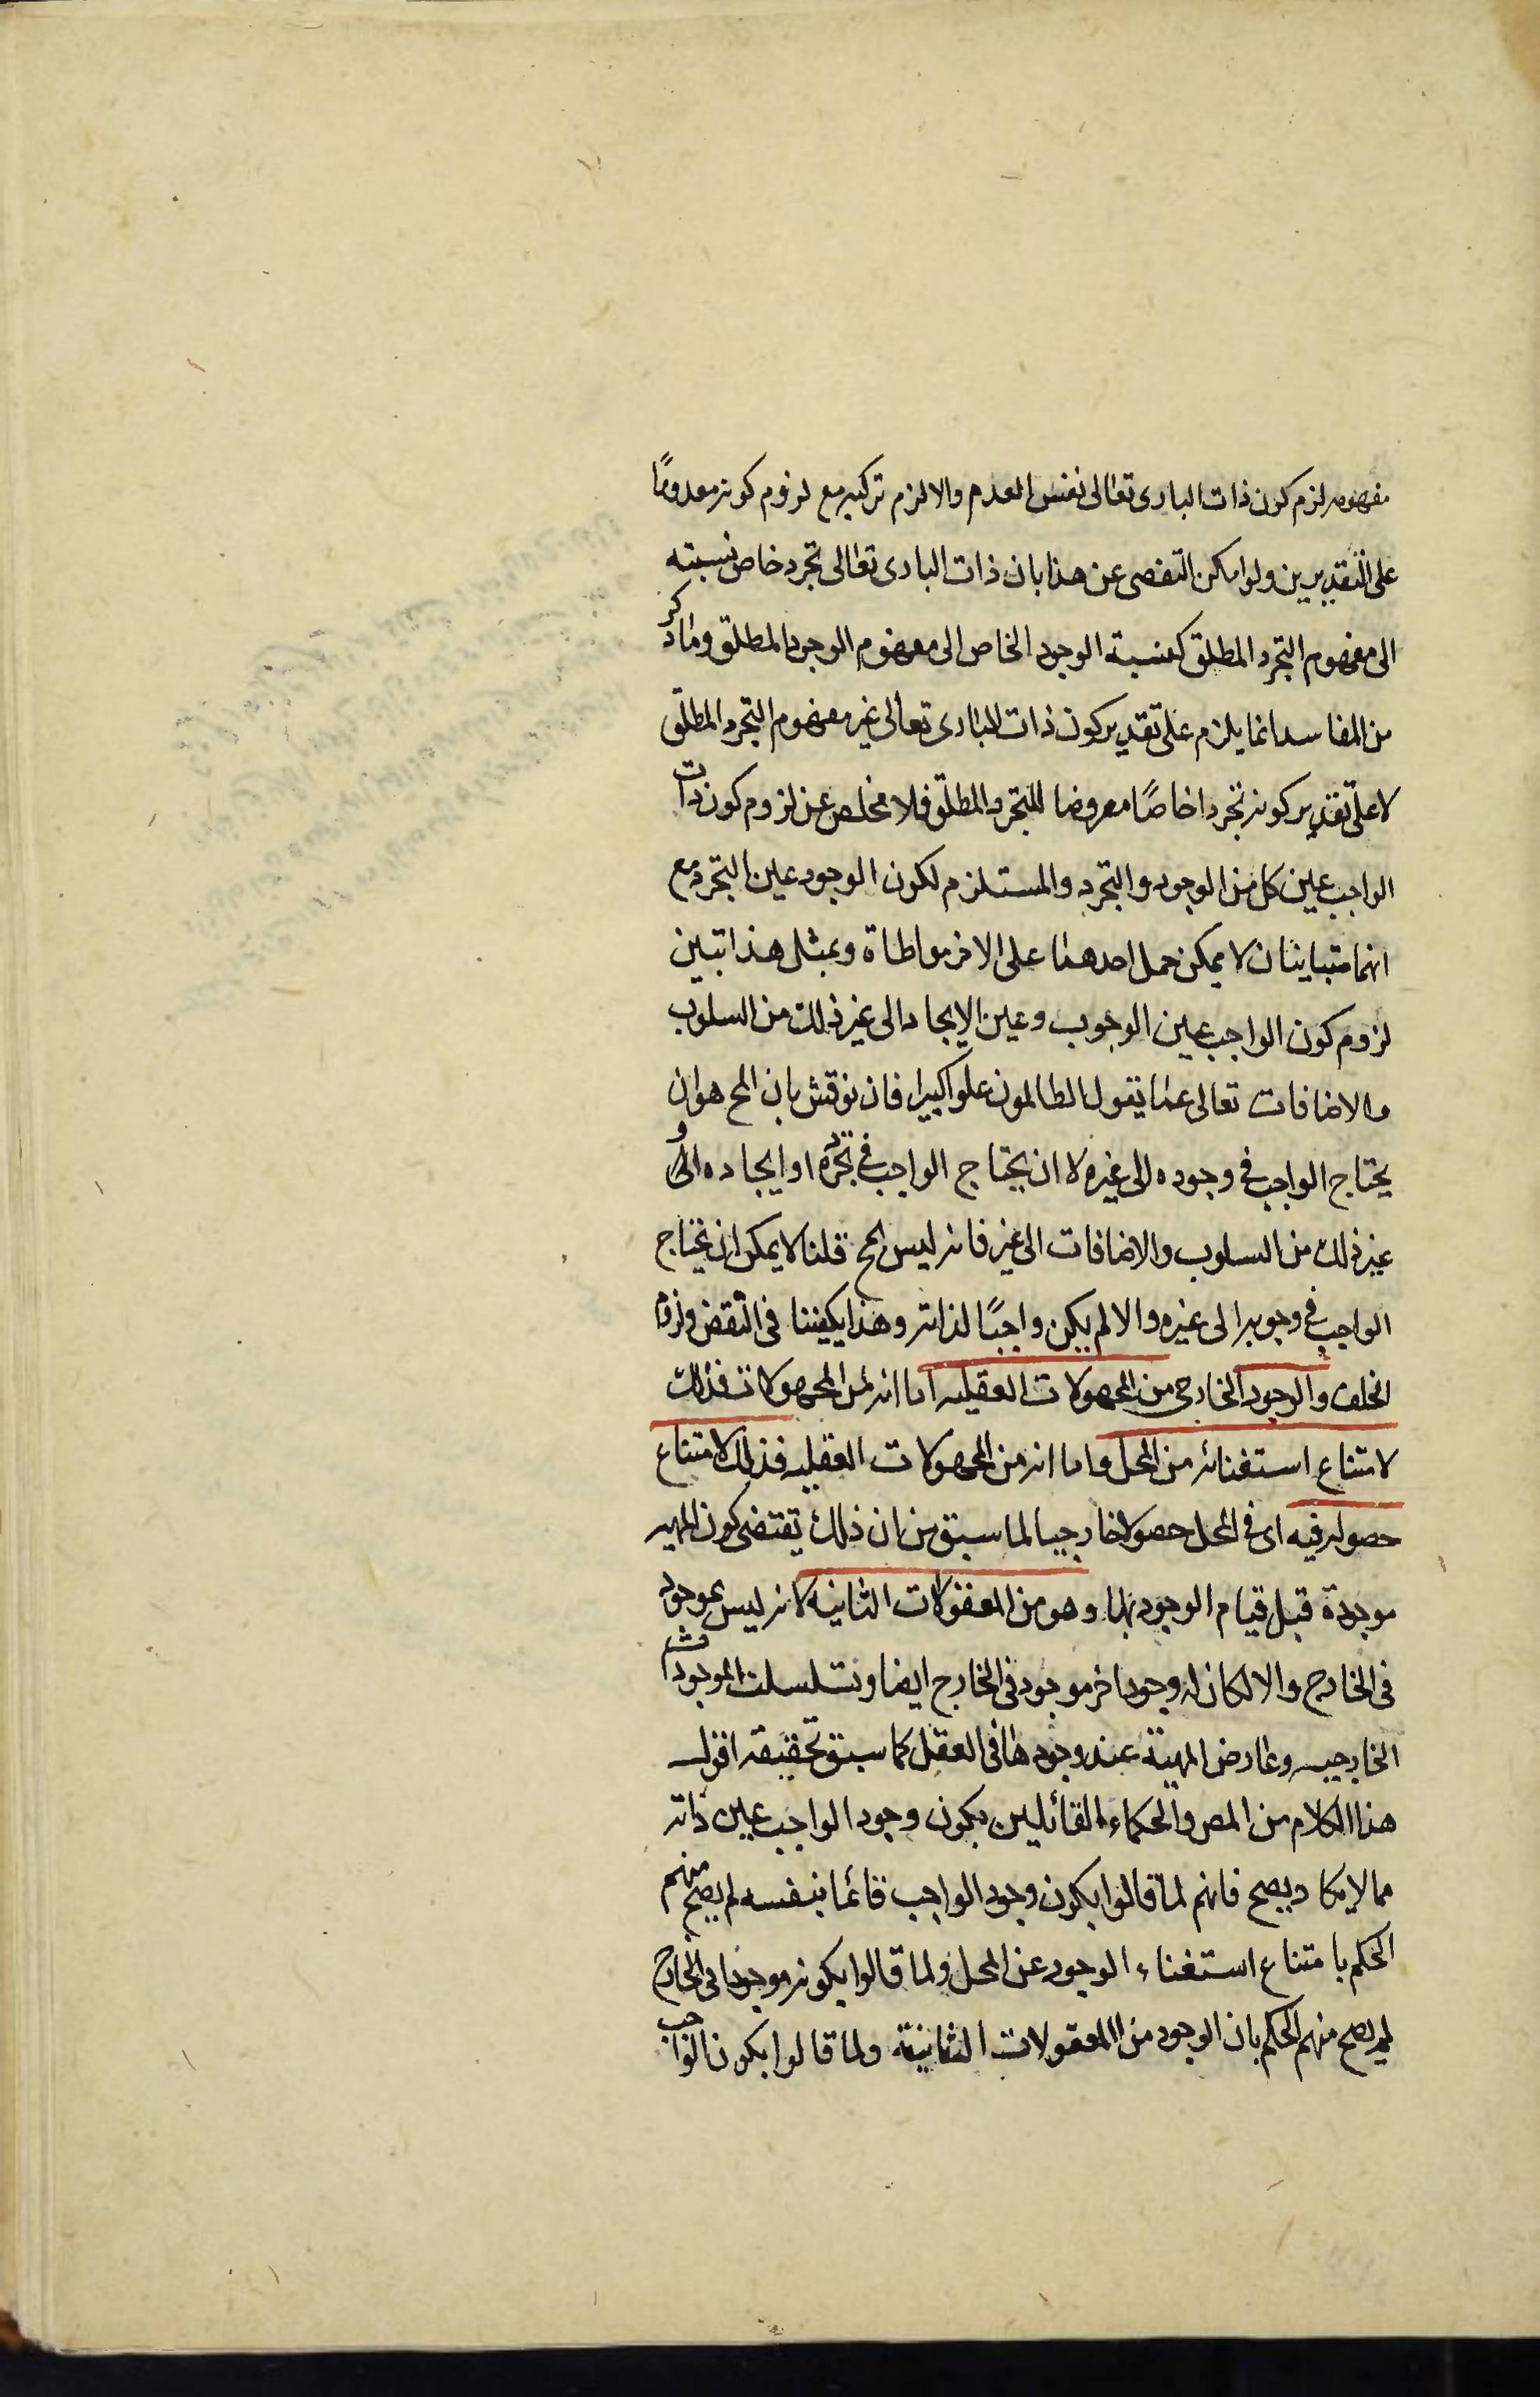 مفهومه لزم كون ذات البارى تعالى نفس العدم والا لزم تركبه مع لزوم كونه معدومًا
على التقديرين ولو امكن التفصى عن هذا بان ذات البارى تعالى تجرد خاص نسبته
الى مفهوم التجرد المطلق كنسبة الوجود الخاص الى مفهوم الوجود المطلق وما ذكر
من المفاسد انما يلزم على تقدير كون ذات البارى تعالى غير مفهوم التجرد المطلق
لا على تقدير كونه تجردا خاصًا معروضا للتجرد المطلق فلا مخلص عن لزوم كون ذات
الواجب عين كل من الوجود والتجرد والمستلزم لكون الوجود عين التجرد مع
انهما متباينان لا يمكن حمل احدهما على الاخر مواطاة وبمثل هذا تبين
لزوم كون الواجب عين الوجوب وعين الايجاد الى غير ذلك من السلوب
والاضافات تعالى عما يقول الظالمون علوا كبيرا فان نوقش بان المح هو ان
يحتاج الواجب فى وجوده الى غيره لا ان يحتاج الواجب فى تجرده او ايجاده او الى
غير ذلك من السلوب والاضافات الى غير فانه ليس بمح قلنا لا يمكن ان يحتاج
الواجب فى وجوبه الى غيره والا لم يكن واجبًا لذاته وهذا يكفينا فى النقض ولزوم
الخلف والوجود الخارجى من المحمولات العقليه اما انه من المحمولات فذلك
لامتناع استغنائه من المحل واما انه من المحمولات العقليه فذلك لامتناع
حصوله فيه اى فى المحل حصولا خارجيا لما سبق من ان ذلك يقتضى كون المهيه
موجودة قبل قيام الوجود بها وهو من المعقولات الثانيه لانه ليس بموجود
فى الخارج والا لكان له وجود اخر موجود فى الخارج ايضا وتسلسلت الموجودات
الخارجيه وعارض المهية عند وجودها فى العقل كما سبق تحقيقه اقول
هذا الكلام من المص والحكماء القائلين بكون وجود الواجب عين ذاته
مما لا يكاد يصح فانهم لما قالوا بكون وجود الواجب قائما بنفسه لم يصح منهم
الحكم بامتناع استغناء الوجود عن المحل ولما قالوا بكونه موجودا فى الخارج
لم يصح منهم الحكم بان الوجود من المعقولات الثانية ولما قالوا بكون الواجب